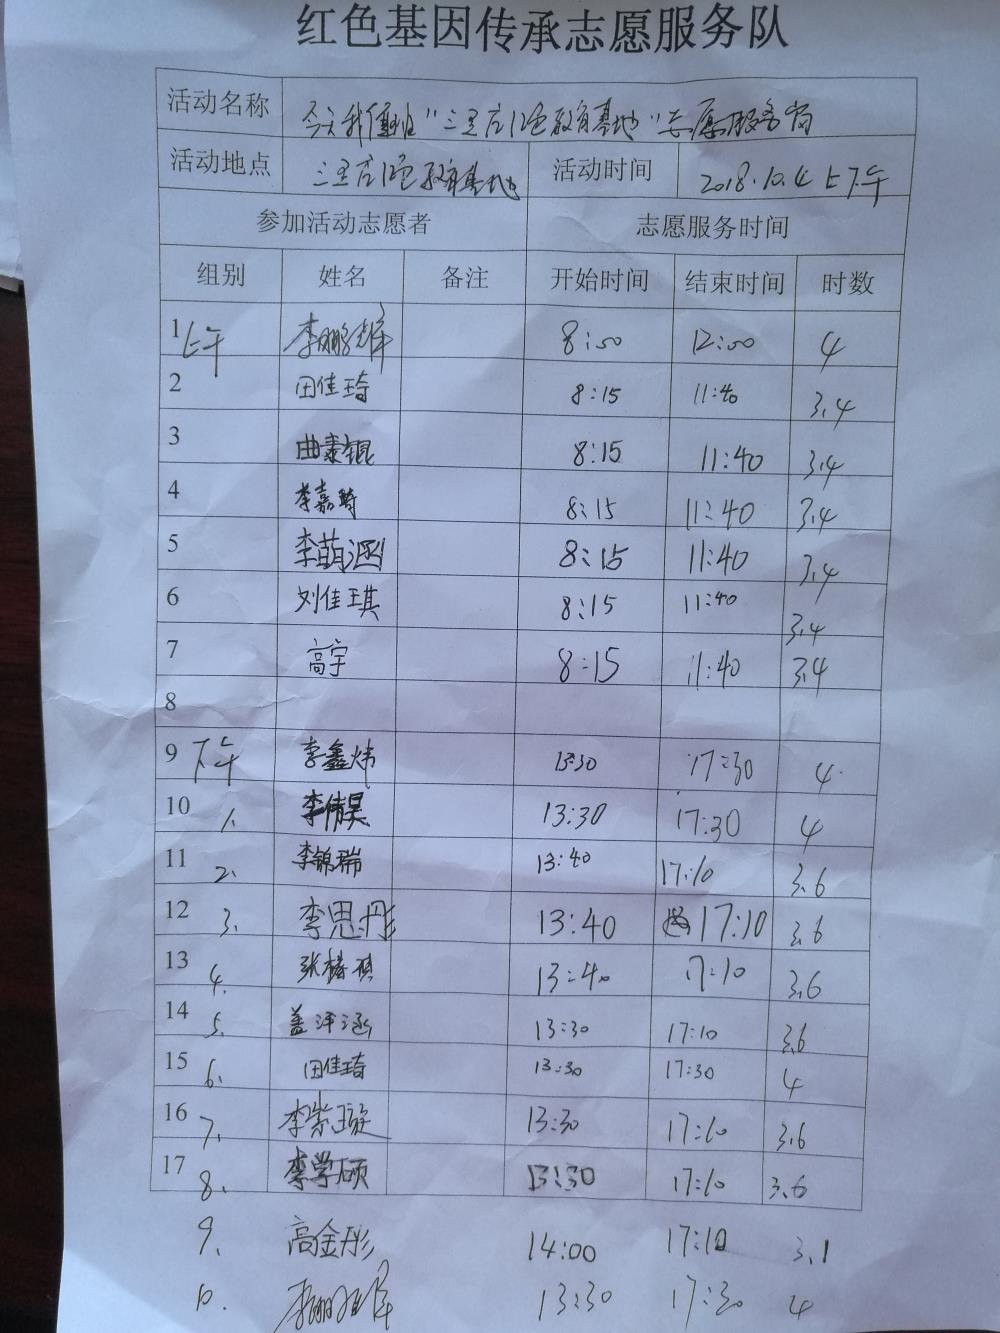 红色基因传承志愿服务队
活动名称 今天我值班"三里庄红色教育基地"志愿服务岗
活动地点 三里庄红色教育基地 活动时间 2018.10.4 上下午
参加活动志愿者 志愿服务时间
组别 姓名 备注 开始时间 结束时间 时数
1 上午 李鹏 8:00 12:00 4
2 田佳琦 8:15 11:40 3.4
3 曲素锟 8:15 11:40 3.4
4 李嘉琦 8:15 11:40 3.4
5 李萌涵 8:15 11:40 3.4
6 刘佳琪 8:15 11:40 3.4
7 高宇 8:15 11:40 3.4
8
9 下午 李鑫炜 13:30 17:30 4
10 1. 李倩昊 13:30 17:30 4
11 2. 李锦瑞 13:40 17:10 3.6
12 3. 李思彤 13:40 17:10 3.6
13 4. 张椿祺 13:40 17:10 3.6
14 5. 盖泽涵 13:30 17:10 3.6
15 6. 田佳琦 13:30 17:30 4
16 7. 李崇璇 13:30 17:10 3.6
17 8. 李学硕 13:30 17:10 3.6
9. 高金彤 14:00 17:10 3.1
10. 李鹏 13:30 17:30 4